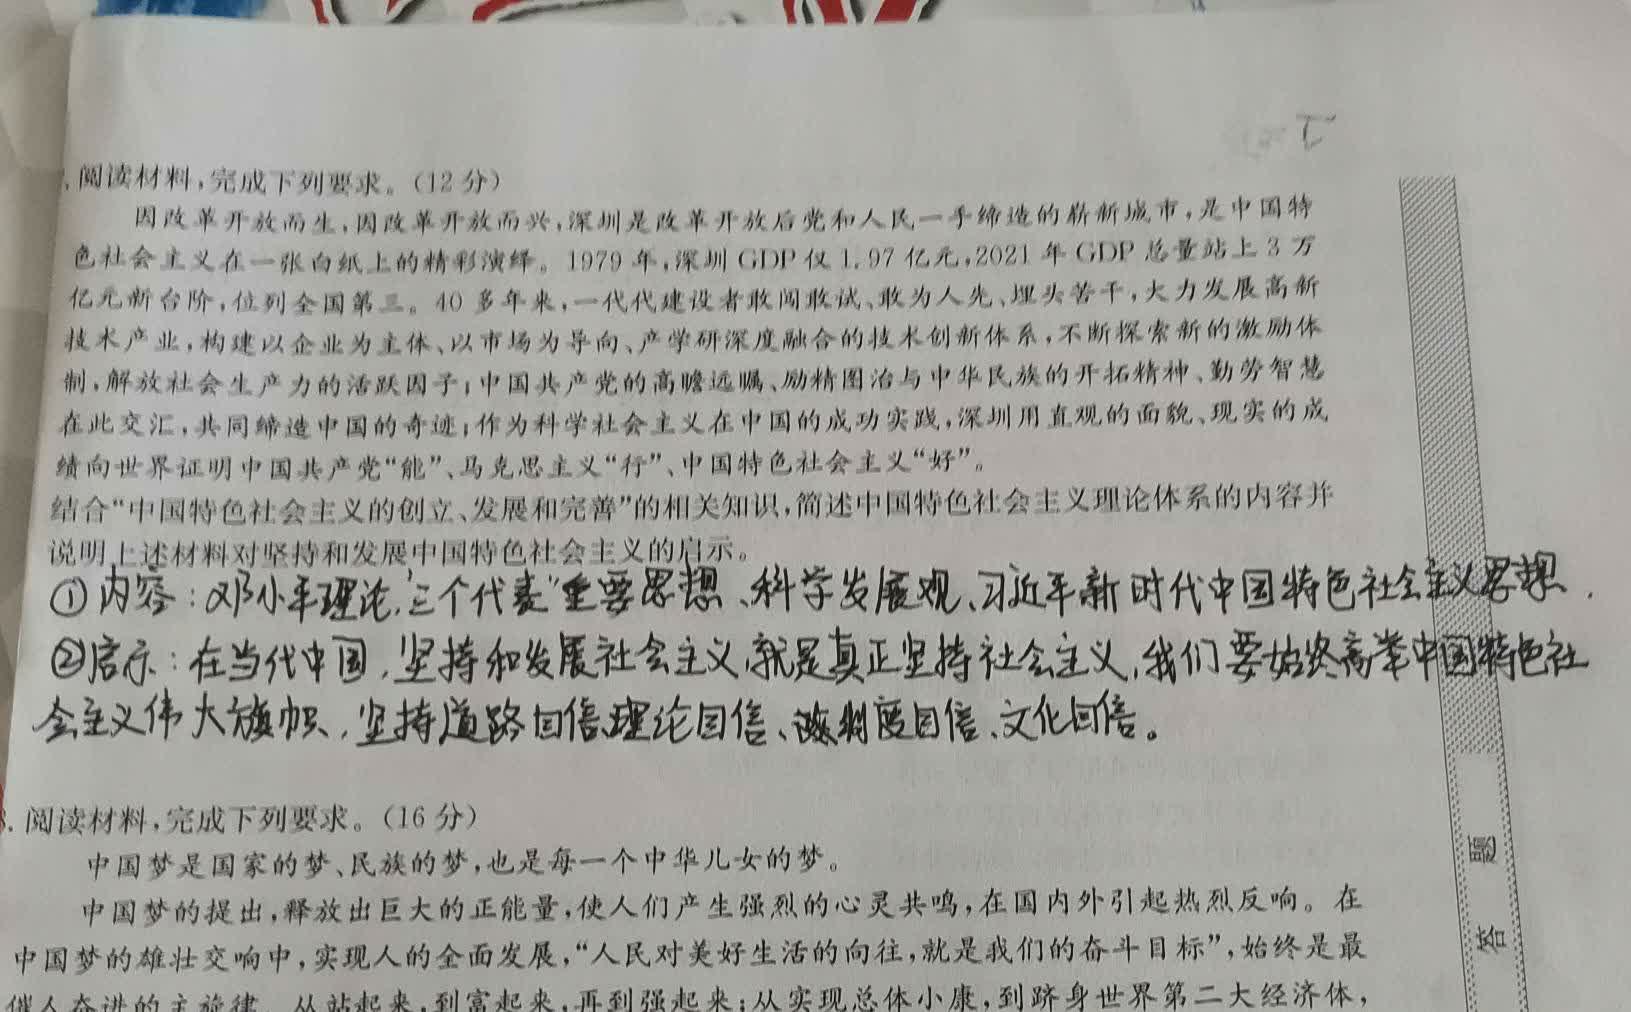 阅读材料,完成下列要求。(12分)
因改革开放而生,因改革开放而兴,深圳是改革开放后党和人民一手缔造的崭新城市,是中国特
色社会主义在一张白纸上的精彩演绎。1979年,深圳GDP仅1.97亿元,2021年GDP总量站上3万
亿元新台阶,位列全国第三。40多年来,一代代建设者敢闯敢试、敢为人先、埋头苦干,大力发展高新
技术产业,构建以企业为主体、以市场为导向、产学研深度融合的技术创新体系,不断探索新的激励体
制,解放社会生产力的活跃因子;中国共产党的高瞻远瞩、励精图治与中华民族的开拓精神、勤劳智慧
在此交汇,共同缔造中国的奇迹;作为科学社会主义在中国的成功实践,深圳用直观的面貌、现实的成
绩向世界证明中国共产党“能”、马克思主义“行”、中国特色社会主义“好”。
结合“中国特色社会主义的创立、发展和完善”的相关知识,简述中国特色社会主义理论体系的内容并
说明上述材料对坚持和发展中国特色社会主义的启示。
①内容:邓小平理论,“三个代表”重要思想、科学发展观、习近平新时代中国特色社会主义思想.
②启示:在当代中国,坚持和发展社会主义,就是真正坚持社会主义,我们要始终高举中国特色社
会主义伟大旗帜,坚持道路自信、理论自信、制度自信、文化自信。
.阅读材料,完成下列要求。(16分)
中国梦是国家的梦、民族的梦,也是每一个中华儿女的梦。
中国梦的提出,释放出巨大的正能量,使人们产生强烈的心灵共鸣,在国内外引起热烈反响。在
中国梦的雄壮交响中,实现人的全面发展,“人民对美好生活的向往,就是我们的奋斗目标”,始终是最
催人奋进的主旋律。从站起来,到富起来,再到强起来;从实现总体小康,到跻身世界第二大经济体,
题
答